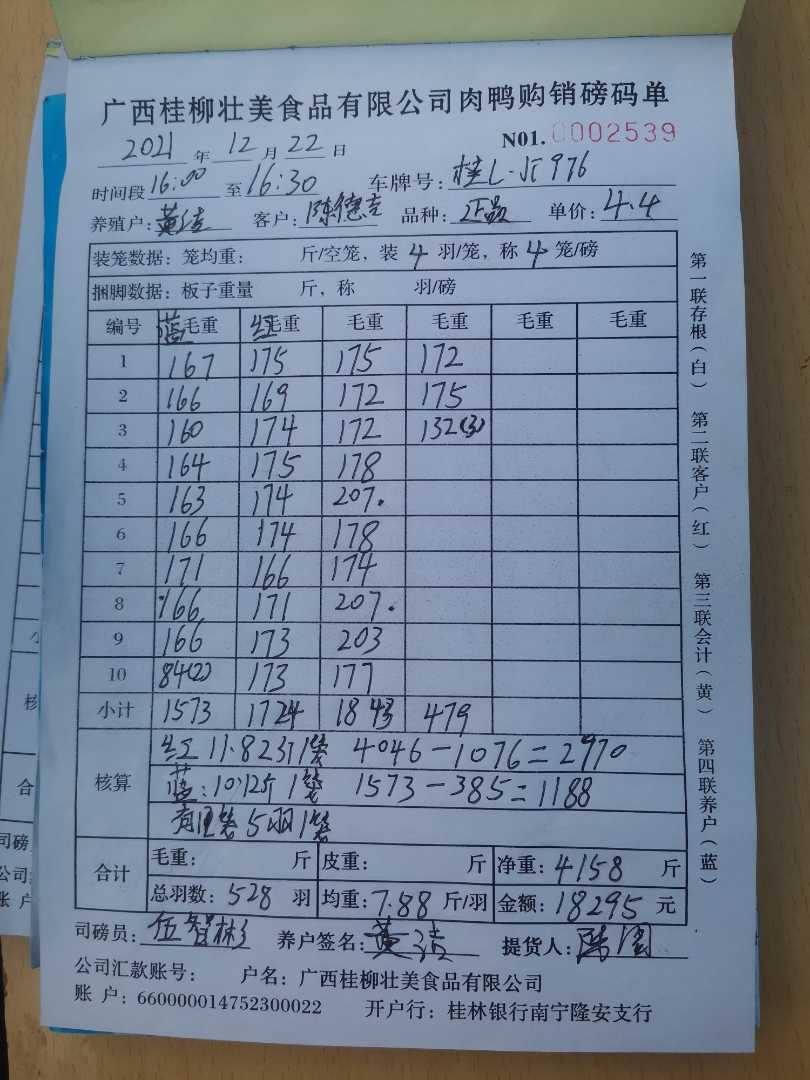 广西桂柳壮美食品有限公司肉鸭购销磅码单
2021 年 12 月 22 日 N01. 0002539
时间段 16:00 至 16:30 车牌号: 桂L·JE976
养殖户: 黄洁 客户: 陈德吉 品种: 正品 单价: 4.4
装笼数据: 笼均重: 斤/空笼, 装 4 羽/笼, 称 4 笼/磅
捆脚数据: 板子重量 斤, 称 羽/磅
编号 蓝毛重 红毛重 毛重 毛重 毛重 毛重
1 167 175 175 172
2 166 169 172 175
3 160 174 172 132(3)
4 164 175 178
5 163 174 207.
6 166 174 178
7 171 166 174
8 166 171 207.
9 166 173 203
10 84(2) 173 177
小计 1573 1724 1843 479
核算
红 11.82斤1笼 4046-1076=2970
蓝: 10.12斤1笼 1573-385=1188
有12笼5羽1笼
合计
毛重: 斤 皮重: 斤 净重: 4158 斤
总羽数: 528 羽 均重: 7.88 斤/羽 金额: 18295 元
司磅员: 伍智彬 养户签名: 黄洁 提货人: 陈
公司汇款账号: 户名: 广西桂柳壮美食品有限公司
账 户: 660000014752300022 开户行: 桂林银行南宁隆安支行
第一联存根(白) 第二联客户(红) 第三联会计(黄) 第四联养户(蓝)
核
合
司磅
公司
账 户